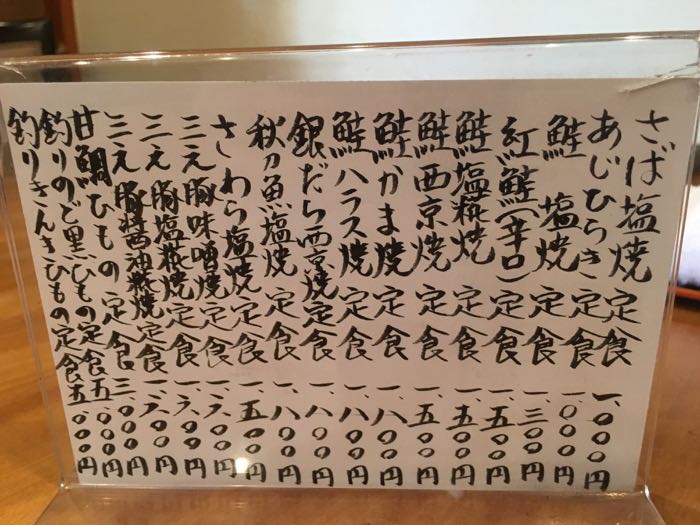 さば塩焼定食 一、〇〇〇円
あじひらき定食 一、〇〇〇円
鮭 塩焼定食 一、三〇〇円
紅鮭(辛口)定食 一、五〇〇円
鮭塩糀焼定食 一、五〇〇円
鮭西京焼定食 一、五〇〇円
鮭かま焼定食 一、八〇〇円
鮭ハラス焼定食 一、八〇〇円
銀だら西京焼定食 一、八〇〇円
秋刀魚塩焼定食 一、八〇〇円
さわら塩焼定食 一、五〇〇円
三元豚味噌焼定食 一、六〇〇円
三元豚塩糀焼定食 一、六〇〇円
三元豚醤油糀焼定食 一、六〇〇円
甘鯛ひもの定食 三、〇〇〇円
釣りのど黒ひもの定食 五、〇〇〇円
釣りきんきひもの定食 五、〇〇〇円